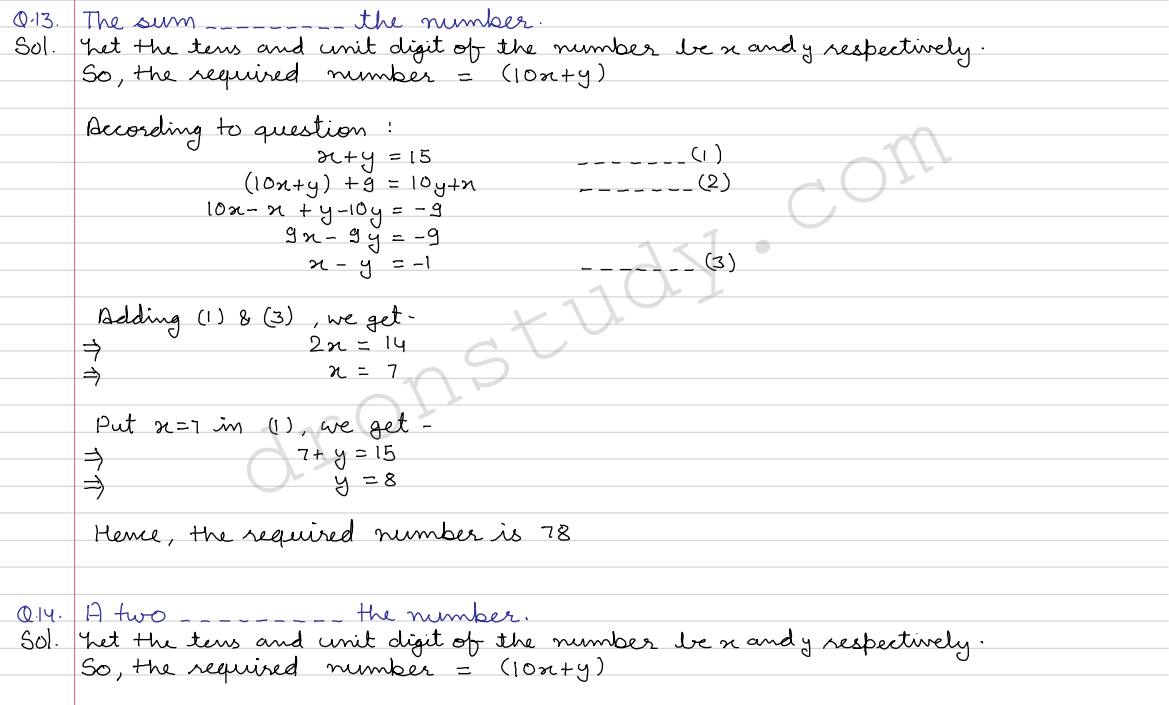 Q.13. The sum _ _ _ _ _ _ _ _ _ the number.
Sol. Let the tens and unit digit of the number be x and y respectively.
So, the required number = (10x+y)
According to question :
x+y = 15 _ _ _ _ _ _ _ (1)
(10x+y) + 9 = 10y+x _ _ _ _ _ _ _ (2)
10x - x + y - 10y = -9
9x - 9y = -9
x - y = -1 _ _ _ _ _ _ _ (3)
Adding (1) & (3), we get -
⇒ 2x = 14
⇒ x = 7
Put x=7 in (1), we get -
⇒ 7+ y = 15
⇒ y = 8
Hence, the required number is 78
Q.14. A two _ _ _ _ _ _ _ _ _ the number.
Sol. Let the tens and unit digit of the number be x and y respectively.
So, the required number = (10x+y)
dronstudy.com